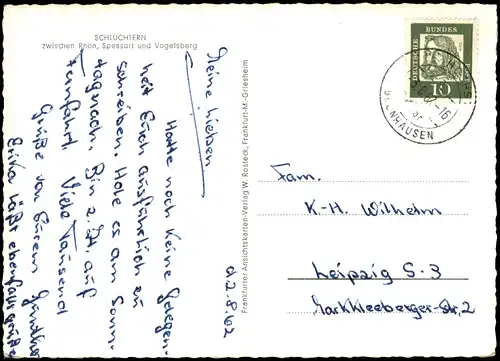 SCHLÜCHTERN
zwischen Rhön, Spessart und Vogelsberg
d. 2.8.62
Meine Lieben
Hatte noch keine Gelegen-
heit Euch ausführlich zu
schreiben. Hole es am Sonn-
tag nach. Bin z. Zt. auf
Fernfahrt. Viele Tausend
Grüße von Eurem Günther
Erika läßt ebenfalls grüßen
Frankfurter Ansichtskarten-Verlag W. Rosteck, Frankfurt-M.-Griesheim
DEUTSCHE
BUNDES
10
LNHAUSEN
Fam.
K-H. Wilhelm
Leipzig S-3
Markkleeberger-Str. 2